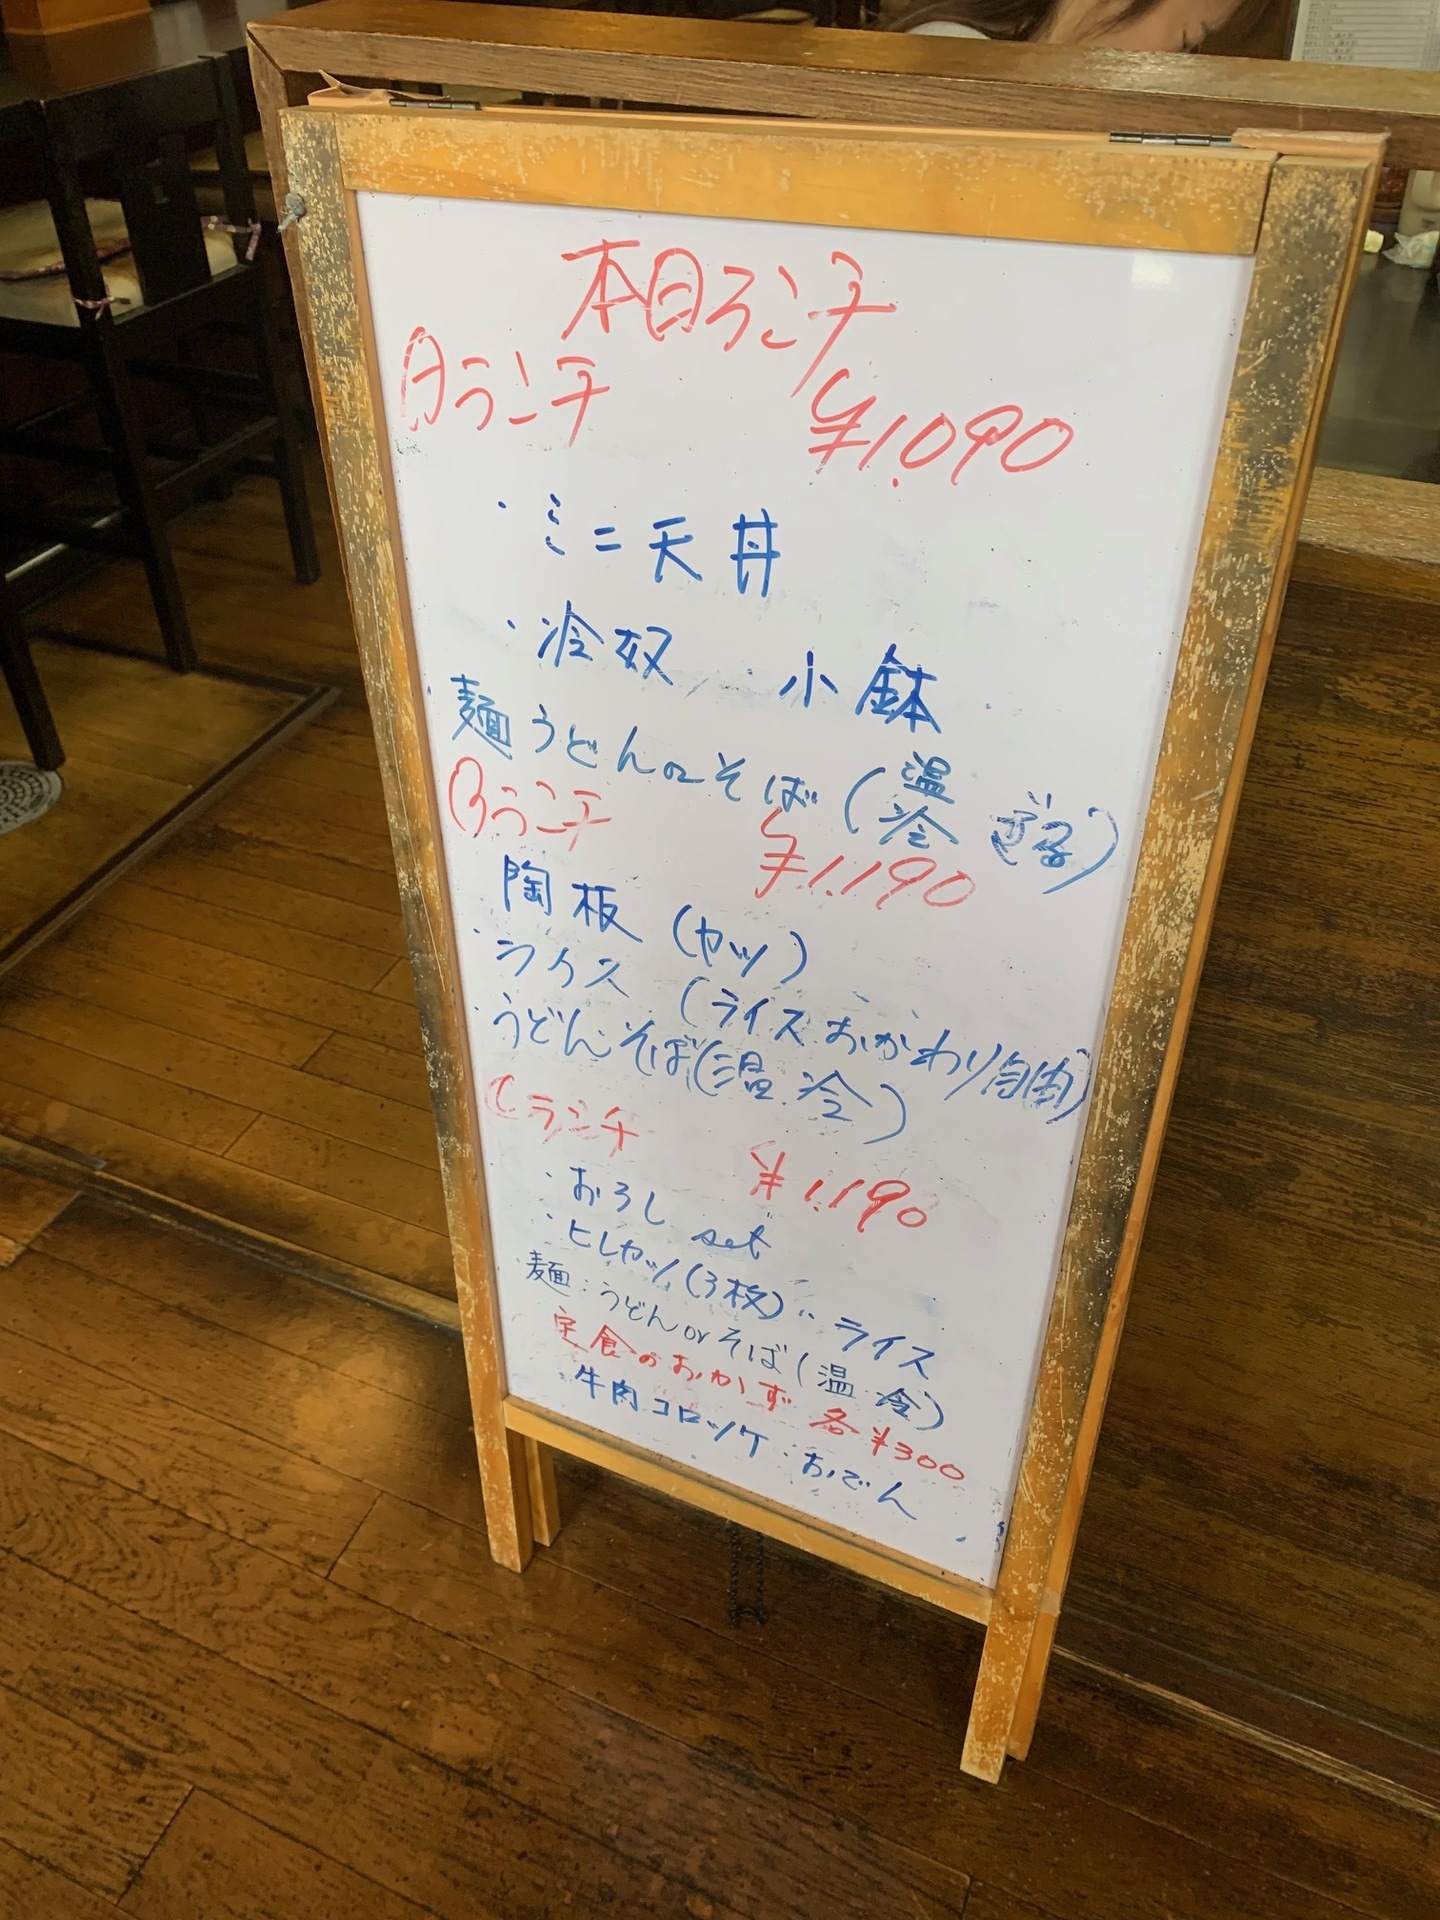 本日ランチ
Aランチ ¥1,090
・ミニ天丼
・冷奴 ・小鉢
・麺うどんorそば(温 冷 ざる)
Bランチ ¥1,190
陶板(カツ)
・ライス(ライスおかわり自由)
・うどん、そば(温 冷)
Cランチ ¥1,190
・おろしset
・ヒレカツ(3枚)・・ライス
・麺:うどんorそば(温 冷)
定食のおかず 各¥300
・牛肉コロッケ・おでん